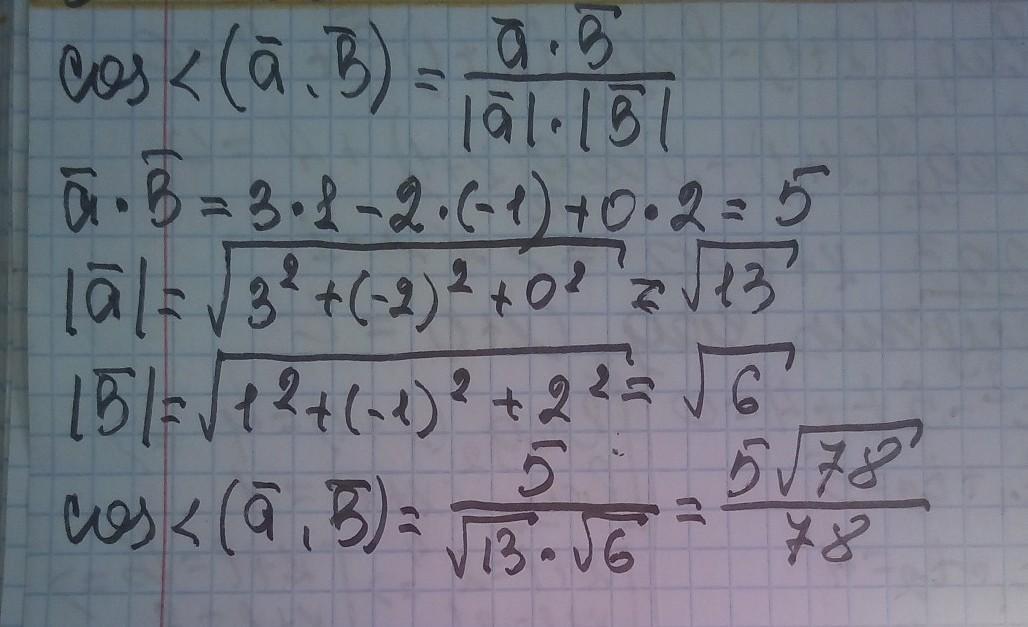 cos < (a̅, B̅) = a̅ · B̅ / |a̅| · |B̅|
a̅ · B̅ = 3 · 1 - 2 · (-1) + 0 · 2 = 5
|a̅| = √(3² + (-2)² + 0²) = √13
|B̅| = √(1² + (-1)² + 2²) = √6
cos < (a̅, B̅) = 5 / √13 · √6 = 5√78 / 78